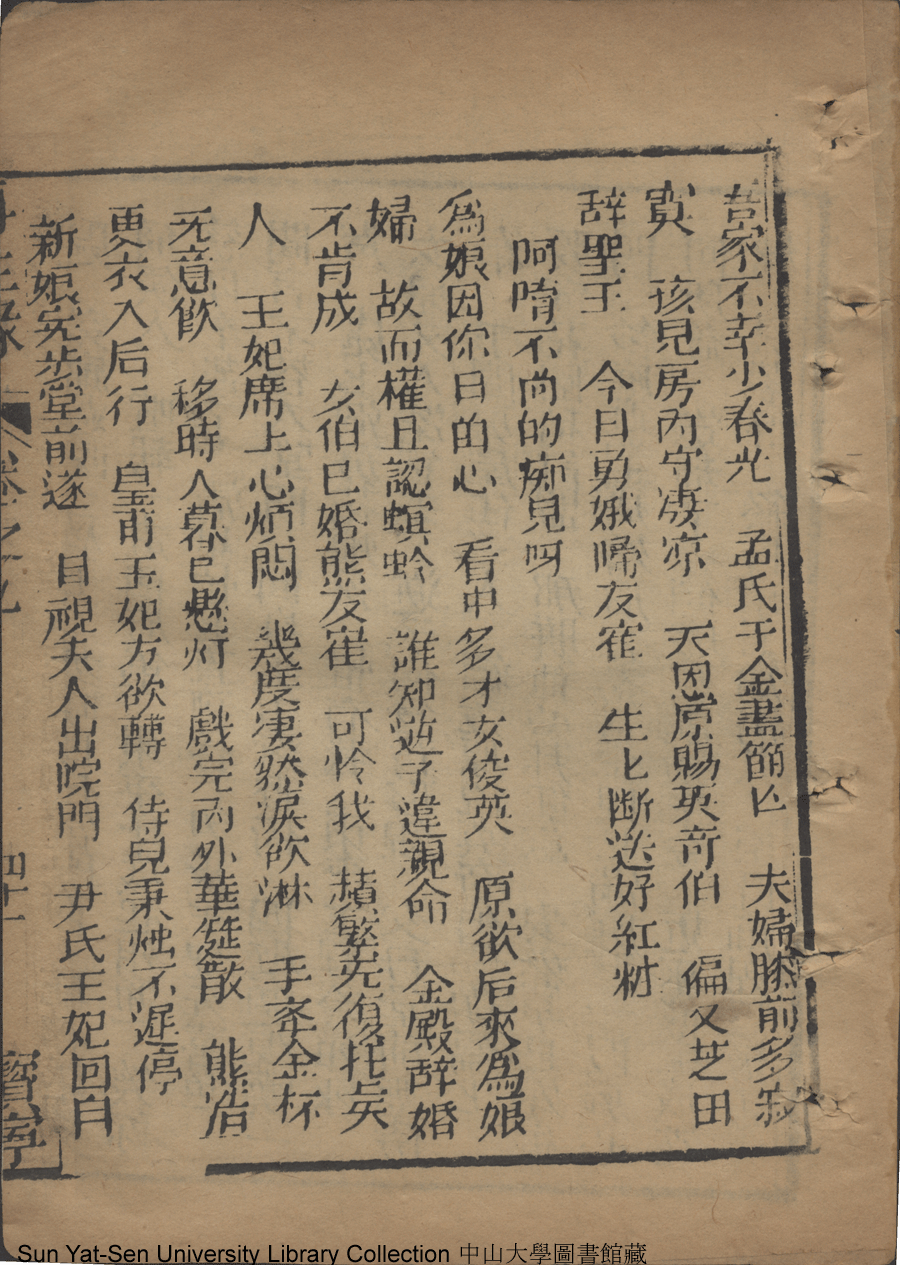 吾家不幸少春光　孟氏千金盡節亡　夫婦膝前多寂
寞　孩兒房內守凄凉　天恩原賜英奇伯　偏又芝田
辞聖王　今日勇娥帰友崔　生匕断送好紅粧
阿唷不尚的痴兒呀
爲娘因你日的心　看中多才女俊英　原欲后來爲娘
婦　故而權且認螟蛉　誰知逆子違親命　金殿辞婚
不肯成　女伯已婚熊友崔　可怜我　蘋繁先復托矣
人　王妃席上心煩悶　幾度凄然淚欲淋　手牽金杯
无意飲　移時人暮已懸灯　戲完內外華筵散　熊浩
更衣入后行　皇甫王妃方欲轉　侍兒秉烛不遲停
新娘完步堂前送　目視夫人出院門　尹氏王妃回自
再生緣　卷之九　四十一　寶寧
Sun Yat-Sen University Library Collection 中山大學圖書館藏